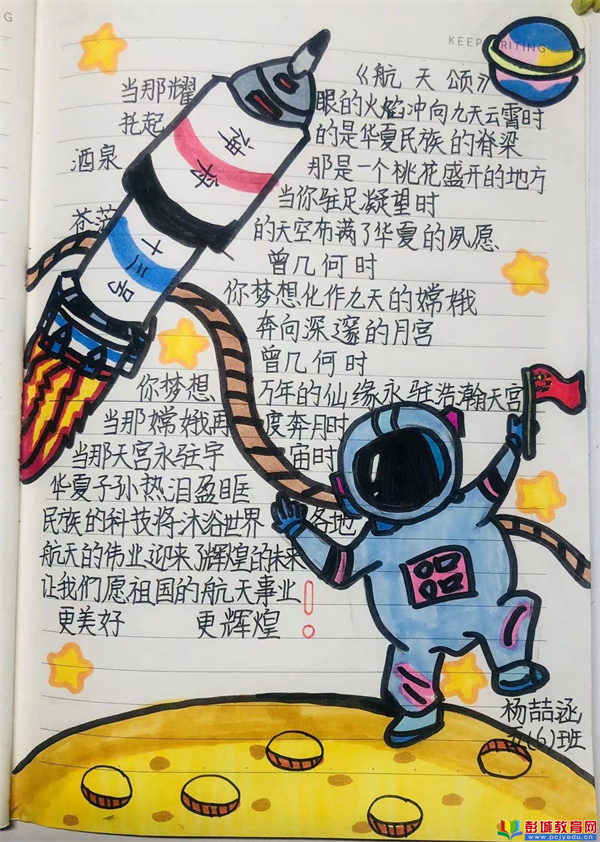 KEEP WRITING
《航天颂》
当那耀眼的火焰冲向九天云霄时
托起的是华夏民族的脊梁
酒泉那是一个桃花盛开的地方
当你驻足凝望时
苍茫的天空布满了华夏的夙愿
曾几何时
你梦想化作九天的嫦娥
奔向深邃的月宫
曾几何时
你梦想万年的仙缘永驻浩瀚天宫
当那嫦娥再度奔月时
当那天宫永驻宇宙时
华夏子孙热泪盈眶
民族的科技将沐浴世界各地
航天的伟业迎来了辉煌的未来
让我们愿祖国的航天事业
更美好 更辉煌!
神舟
十三号
杨喆涵
五(6)班
彭城教育网
www.pcjyedu.cn